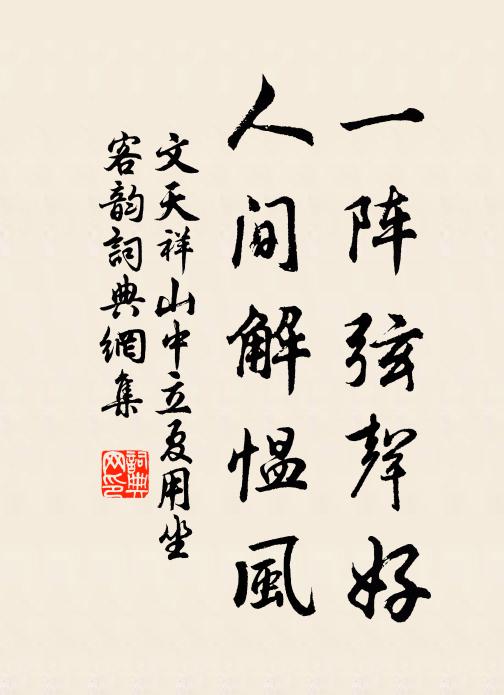 一阵弦聲好
人间解愠風
文天祥山中立夏用坐
客韵詞典網集
詞典网印